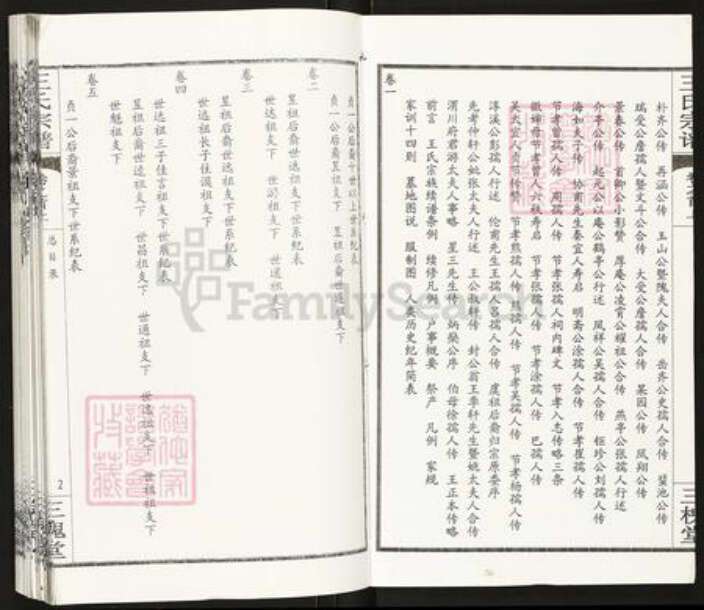 王氏宗谱
三槐堂
朴齐公传 再涵公传 玉山公暨隗夫人合传 岳齐公史孺人合传 蜚池公传
瑞受公詹孺人暨文斗公合传 大受公詹孺人合传 果园公传 凤翔公传
景春公传 首卿公小影赞 厚庵公凌霄公耀祖公合传 燕亭公张孺人行述
介亭公传 起元公以庵公鹤亭公行述 凤祥公吴孺人合传 钜珍公刘孺人传
海如夫子传 协甫先生秦宜人寿启 明斋公涂孺人合传 节孝崔孺人传
节孝曾孺人传 周孺人传 节孝张孺人祠内碑文 节孝入志传略三条
节孝曾人六秩寿启 节孝张孺人传 节孝涂孺人传 巴孺人传
吴太宜人贞节传赞 节孝熊孺人传 孺人传 节孝吴孺人传 节孝杨孺人传
淳溪公彭孺人行述 伦甫先生王孺人吕孺人合传 虞祖后裔归宗原委序
先考仲轩公妣张太夫人行述 王公椒轩传 封公翁王季轩先生暨姚太夫人合传
渭川府君游太夫人事略 星三先生传 炳燊公序 伯母徐孺人传 王正本传略
前言 王氏宗族续谱条例 续修凡例 户事概要 祭产 凡例 家规
家训十四则 墓地图说 服制图 人类历史纪年简表
卷一
贞一公后裔十世以上世系纪表
贞一公后裔昱祖支下 昱祖后裔世达祖支下
卷二
昱祖后裔世达祖支下世系纪表
世达祖支下 世祖支下 世述祖支下
卷三
昱祖后裔世选祖支下世系纪表
世选祖长子佳谟祖支下
卷四
世选祖三子佳言祖支下世系纪表
昱祖后裔世遠祖支下 世昌祖支下 世通祖支下 世迄祖支下 世祖祖支下
世魁祖支下
卷五
贞一公后裔景祖支下世系纪表
总目录
2
王氏宗譜
三槐堂
FamilySearch
猶他家譜學會特藏